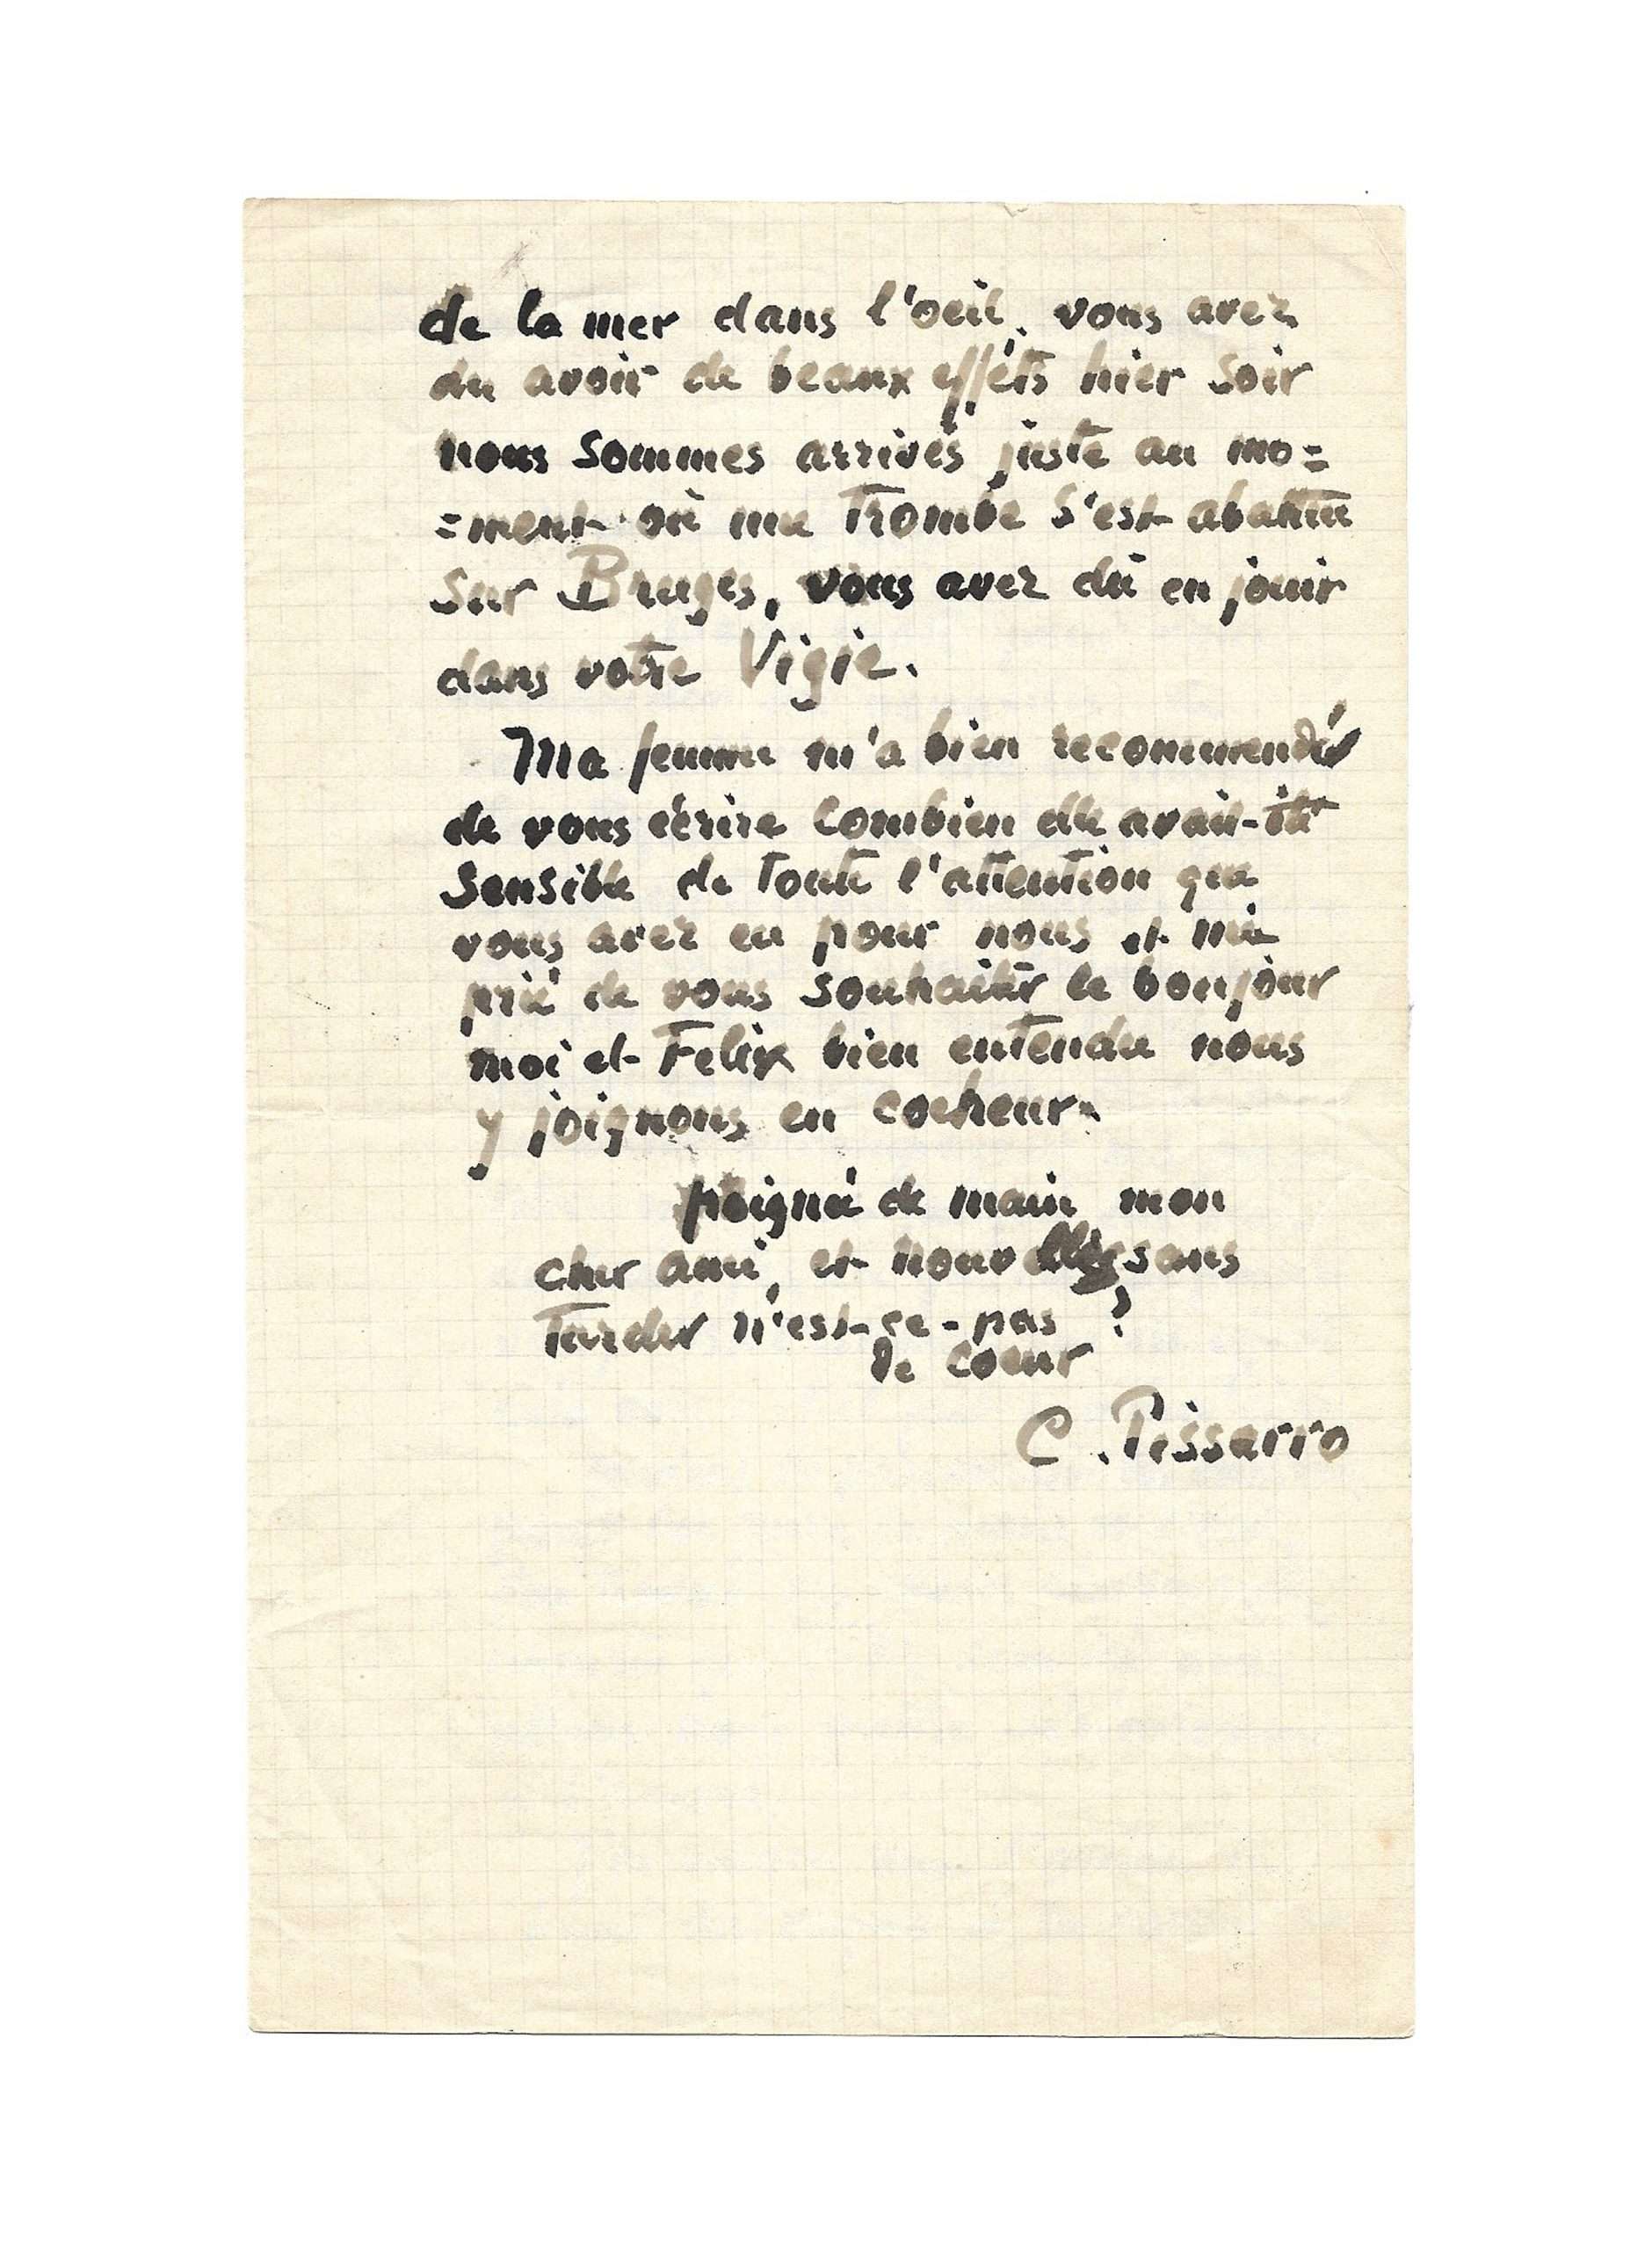 de la mer dans l'oeil. vous avez
du avoir de beaux effets hier soir
nous sommes arrivés juste au mo=
=ment où une Trombe s'est abattue
sur Bruges, vous avez dû en jouir
dans votre Vigie.
Ma femme m'a bien recommendé
de vous écrire combien elle avait-été
Sensible de toute l'attention que
vous avez eu pour nous et m'a
prié de vous souhaiter le bonjour
moi et Felix bien entendu nous
y joignons en
poignée de main mon
cher ami, et nouvelles sans
Tarder n'est-ce-pas ?
de coeur
C. Pissarro